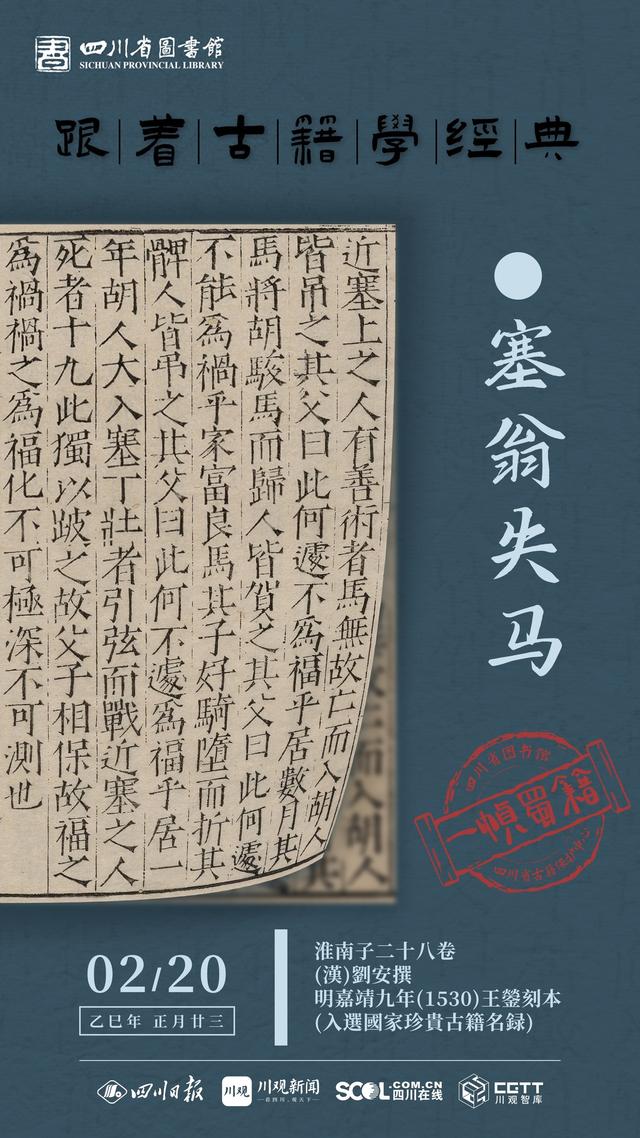 四川省圖書館
SICHUAN PROVINCIAL LIBRARY
跟着古籍學經典
近塞上之人有善術者馬無故亡而入胡人
皆吊之其父曰此何遽不為福乎居數月其
馬將胡駿馬而歸人皆賀之其父曰此何遽
不能為禍乎家富良馬其子好騎墮而折其
髀人皆吊之其父曰此何不遽為福乎居一
年胡人大入塞丁壯者引弦而戰近塞之人
死者十九此獨以跛之故父子相保故福之
為禍禍之為福化不可極深不可測也
塞翁失马
四川省图书馆
一幀蜀籍
四川省古籍保护中心
02/20
乙巳年 正月廿三
淮南子二十八卷
(漢)劉安撰
明嘉靖九年(1530)王鎣刻本
(入選國家珍貴古籍名録)
四川日报
川观
川观新闻
看四川,观天下
SCOL.COM.CN
四川在线
CGTT
川观智库